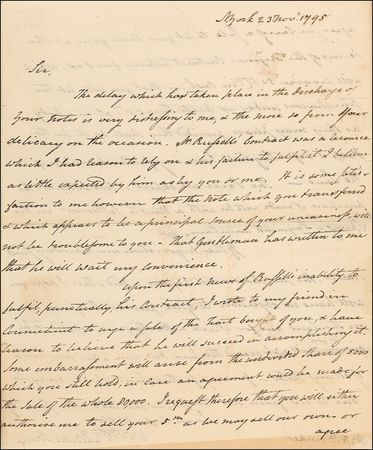 N York 23 Novr. 1795
Sir,
The delay which has taken place in the discharge of
Your Notes is very distressing to me, & the more so from Your
delicacy on the occasion. Mr. Russells Contract was a resource
which I had reason to rely on & his failure to fulfil it I believe
as little expected by him as by you or me. It is some satis-
faction to me however that the Note which you transferred
& which appears to be a principal source of your uneasiness, will
not be troublesome to you - That Gentleman has written to me
that he will wait my convenience.
Upon the first News of Russells inability to
fulfil punctually his Contract, I wrote to my friend in
Connecticut to urge a sale of the Tract bought of you, & have
reason to believe that he will succeed in accomplishing it.
Some embarrassment will arise from the undivided share of 5000
which you still hold, in case an agreement would be made for
the Sale of the whole 89000. I request therefore that you will either
authorise me to sell your 5m. as we may sell our own - or
agree